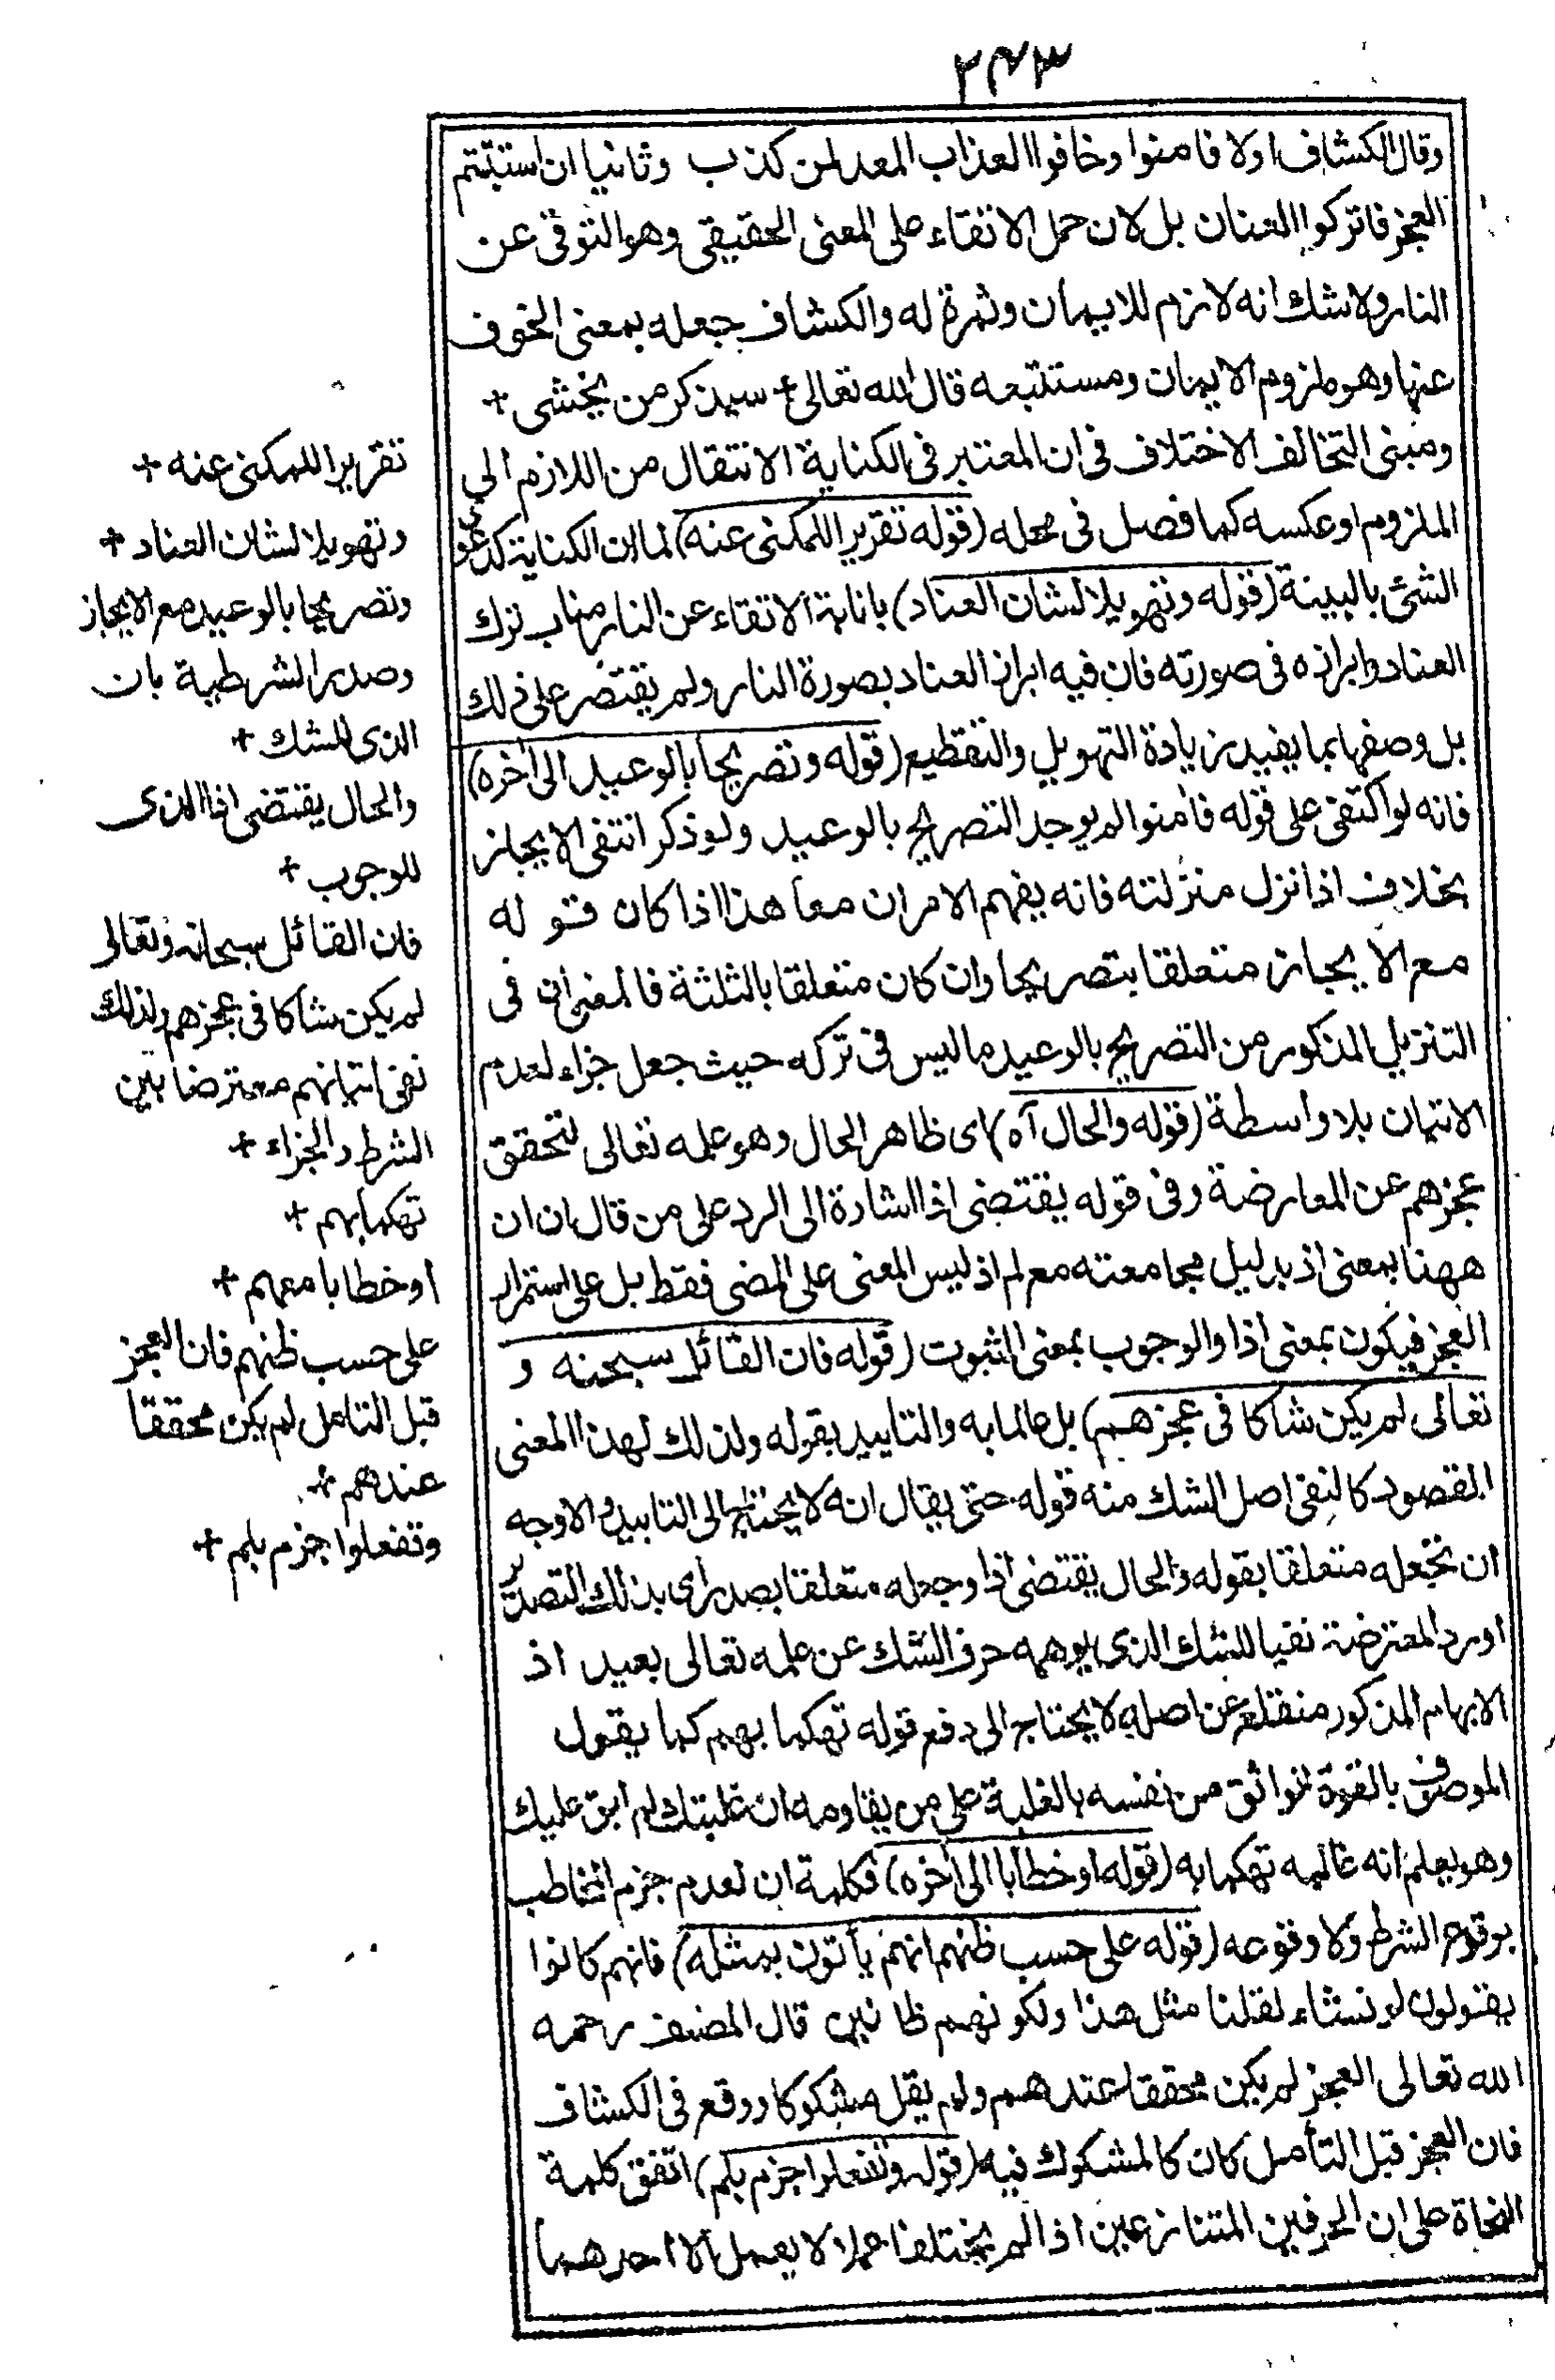 ٢٤٣
وقال الكشاف اولا فامنوا وخافوا العذاب المعد لمن كذب وثانيا ان استبنتم
العجز فاتركوا العنان بل لان حمل الاتقاء على المعنى الحقيقي وهو التوقى عن
النار ولا شك انه لازم للايمان وثمرة له والكشاف جعله بمعنى الخوف
عنها وهو ملزوم الايمان ومستتبعه قال الله تعالى + سيذكر من يخشى +
ومبنى التخالف الاختلاف فى ان المعتبر فى الكناية الانتقال من اللازم الي
الملزوم او عكسه كما فصل فى محله (قوله تقريرا للمكنى عنه) لما ان الكناية كدعوى
الشئ بالبينة (قوله وتهويلا لشان العناد) بانابة الاتقاء عن النار مناب ترك
العناد وابرازه فى صورته فان فيه ابراز العناد بصورة النار ولم يقتصر على ذلك
بل وصفها بما يفيد زيادة التهويل والتفظيع (قوله وتصريحا بالوعيد الى اخره)
فانه لو اكتفى على قوله فامنوا لم يوجد التصريح بالوعيد ولو ذكر انتفى الايجاز
بخلاف اذا نزل منزلته فانه يفهم الامران معا هذا اذا كان قوله
مع الايجاز متعلقا بتصريحا وان كان متعلقا بالثلثة فالمعنى ان فى
التنزيل المذكور من التصريح بالوعيد ما ليس فى تركه حيث جعل جزاء لعدم
الاتيان بلا واسطة (قوله والحال آه) اى ظاهر الحال وهو علمه تعالى لتحقق
عجزهم عن المعارضة وفى قوله يقتضى اذا اشارة الى الرد على من قال ان ان
ههنا بمعنى اذ بدليل مجامعته مع لم اذ ليس المعنى على المضى فقط بل على استمرار
العجز فيكون بمعنى اذا والوجوب بمعنى الثبوت (قوله فان القائل سبحنه و
تعالى لم يكن شاكا فى عجزهم) بل عالما به والتاييد بقوله ولذلك لهذا المعنى
المقصود كالنفى اصل الشك منه قوله حتى يقال انه لا يحتاج الى التاييد والاوجه
ان تجعله متعلقا بقوله والحال يقتضى اذا وجعله متعلقا بصدر اى بذلك التصدير
اورد المعترضة نفيا للشك الذى يوهمه حرف الشك عن علمه تعالى بعيد اذ
الابهام المذكور منقلع عن اصله لا يحتاج الى دفع قوله تهكما بهم كما يقول
الموصوف بالقوة الواثق من نفسه بالغلبة على من يقاومه ان غلبتك لم ابق عليك
وهو يعلم انه غالبه تهكما به (قوله او خطابا الى اخره) فكلمة ان لعدم جزم المخاطب
بوقوع الشرط ولا وقوعه (قوله على حسب ظنهم انهم يأتون بمثله) فانهم كانوا
يقولون لو نشاء لقلنا مثل هذا ولكونهم ظانين قال المصنف رحمه
الله تعالى العجز لم يكن محققا عندهم ولم يقل مشكوكا ووقع فى الكشاف
فان العجز قبل التأمل كان كالمشكوك فيه (قوله وتفعلوا جزم بلم) اتفق كلمة
النحاة على ان الحرفين المتنازعين اذا لم يختلفا عملا لا يعمل الا احدهما
تقريرا للمكنى عنه +
وتهويلا لشان العناد +
وتصريحا بالوعيد مع الايجاز
وصدر الشرطية بان
الذى للشك +
والحال يقتضى اذا الذى
للوجوب +
فان القائل سبحانه وتعالى
لم يكن شاكا فى عجزهم ولذلك
نفى اتيانهم معترضا بين
الشرط والجزاء +
تهكما بهم +
او خطابا معهم +
على حسب ظنهم فان العجز
قبل التامل لم يكن محققا
عندهم +
وتفعلوا جزم بلم +